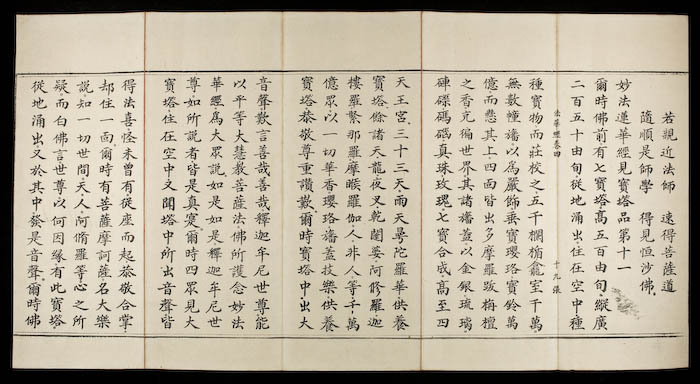 若親近法師　速得菩薩道
隨順是師學　得見恒沙佛
妙法蓮華經見寶塔品第十一
爾時佛前有七寶塔高五百由旬縱廣
二百五十由旬從地涌出住在空中種
法華經卷四　十九張
種寶物而莊校之五千欄楯龕室千萬
無數幢幡以爲嚴飾垂寶瓔珞寶鈴萬
億而懸其上四面皆出多摩羅跋栴檀
之香充徧世界其諸幡蓋以金銀琉璃
硨磲碼碯真珠玫瑰七寶合成高至四
天王宮三十三天雨天曼陀羅華供養
寶塔餘諸天龍夜叉乾闥婆阿脩羅迦
樓羅緊那羅摩睺羅伽人非人等千萬
億眾以一切華香瓔珞幡蓋技樂供養
寶塔恭敬尊重讚歎爾時寶塔中出大
音聲歎言善哉善哉釋迦牟尼世尊能
以平等大慧教菩薩法佛所護念妙法
華經爲大眾說如是如是釋迦牟尼世
尊如所說者皆是真實爾時四眾見大
寶塔住在空中又聞塔中所出音聲皆
得法喜怪未曾有從座而起恭敬合掌
却住一面爾時有菩薩摩訶薩名大樂
說知一切世間天人阿脩羅等心之所
疑而白佛言世尊以何因緣有此寶塔
從地涌出又於其中發是音聲爾時佛